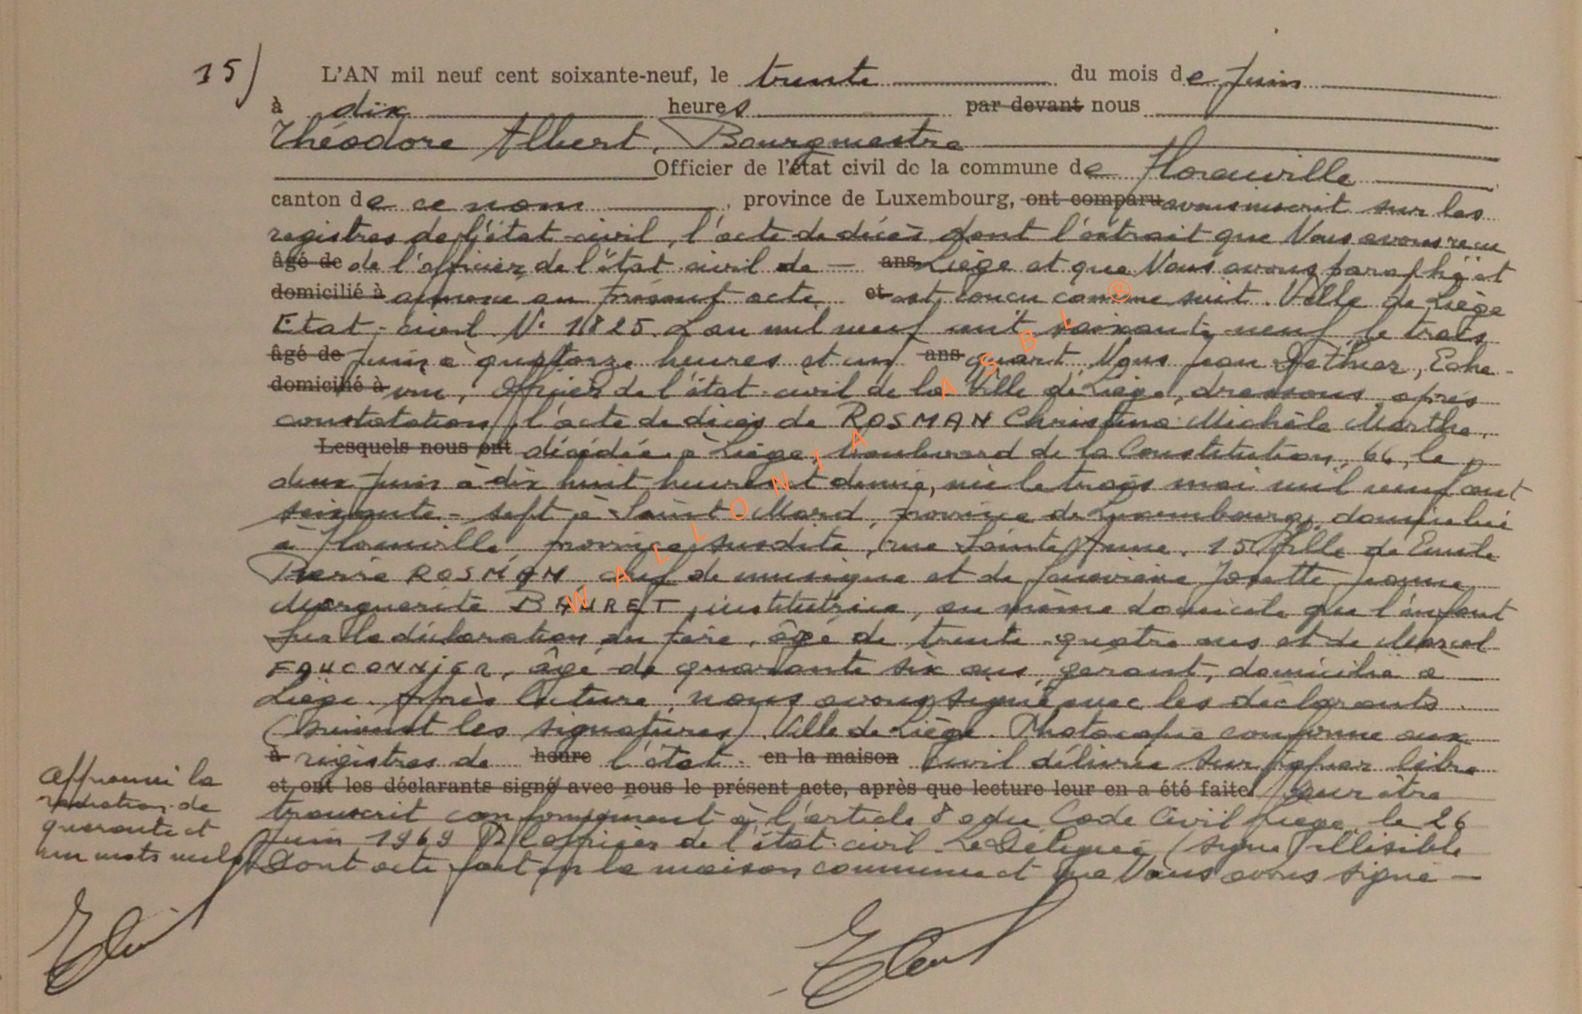 15) L'AN mil neuf cent soixante-neuf, le trente du mois de Juin
à dix heures par devant nous
Théodore Albert, Bourgmestre
Officier de l'état civil de la commune de Florenville
canton de ce nom, province de Luxembourg, ont comparu avons inscrit sur les
registres de l'état-civil, l'acte de décès dont l'extrait que Nous avons reçu
âgé de de l'officier de l'état civil de — ans Liège et que Nous avons paraphé et
domicilié à annexé au présent acte et est conçu comme suit. Ville de Liège
Etat-civil N° 1825. L'an mil neuf cent soixante neuf le trois
âgé de Juin à quatorze heures et un ans quart Nous Jean Dethier, Eche-
domicilié à vin, Officier de l'état-civil de la Ville de Liège, dressons après
constatation, l'acte de décès de ROSMAN Christine Michèle Marthe,
Lesquels nous ont décédée à Liège, boulevard de la Constitution, 66, le
deux Juin à dix huit heures et demie, née le trois mai mil neuf cent
soixante-sept à Saint Mard, province de Luxembourg, domiciliée
à Florenville, province susdite, rue Sainte Anne, 15 fille de Emile
Pierre ROSMAN chef de musique et de Geneviève Josette Jeanne
Marguerite BAURET, institutrice, au même domicile que l'enfant
Sur la déclaration du père, âgé de trente-quatre ans et de Marcel
FAUCONNIER, âgé de quarante six ans, gérant, domicilié à
Liège. Après lecture, nous avons signé avec les déclarants.
(Suivent les signatures) Ville de Liège. Photocopie conforme aux
à registres de heure l'état- en la maison civil délivrée sur papier libre
et ont les déclarants signé avec nous le présent acte, après que lecture leur en a été faite. pour être
transcrit conformément à l'article 80 du Code Civil Liège, le 26
Juin 1969 P/l'officier de l'état-civil Le Délégué (signé) illisible
Dont acte fait en la maison communale et que Nous avons signé —
Approuvé la
radiation de
quarante et
un mots nuls
WALLONIA ASBL ®